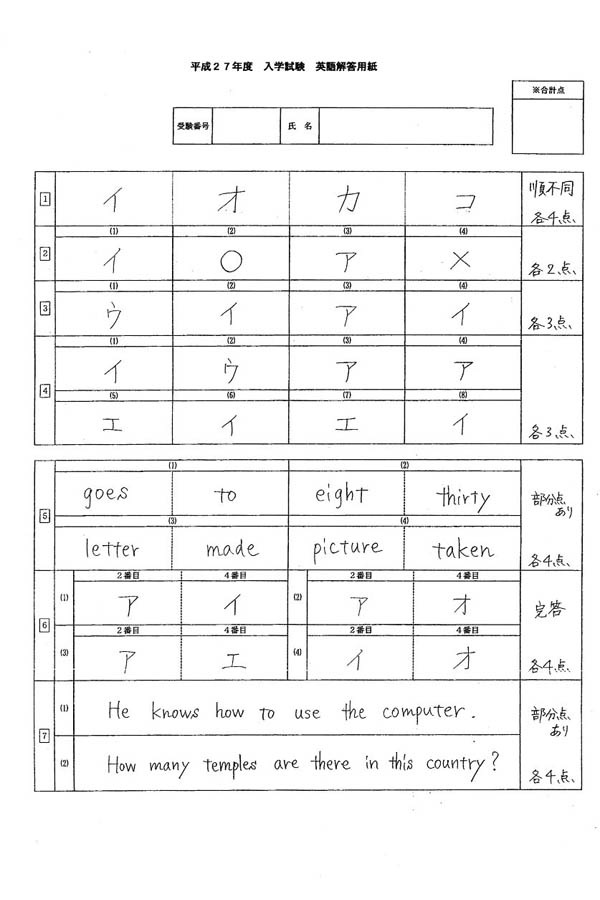 平成27年度 入学試験 英語解答用紙
※合計点
受験番号 氏名
1 イ オ カ コ 順不同 各4点、
(1) (2) (3) (4)
2 イ ○ ア × 各2点、
(1) (2) (3) (4)
3 ウ イ ア イ 各3点、
(1) (2) (3) (4)
4 イ ウ ア ア
(5) (6) (7) (8)
エ イ エ イ 各3点、
(1) (2)
5 goes to eight thirty 部分点あり
(3) (4)
letter made picture taken 各4点、
2番目 4番目 2番目 4番目
6 (1) ア イ (2) ア オ 完答
2番目 4番目 2番目 4番目
(3) ア エ (4) イ オ 各4点、
7 (1) He knows how to use the computer. 部分点あり
(2) How many temples are there in this country? 各4点、